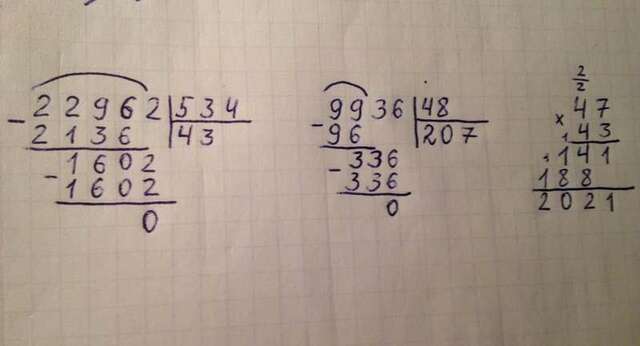 22962 534
- 2136 43
1602
- 1602
0
9936 48
- 96 207
336
- 336
0
2
2
47
× 43
141
188
2021